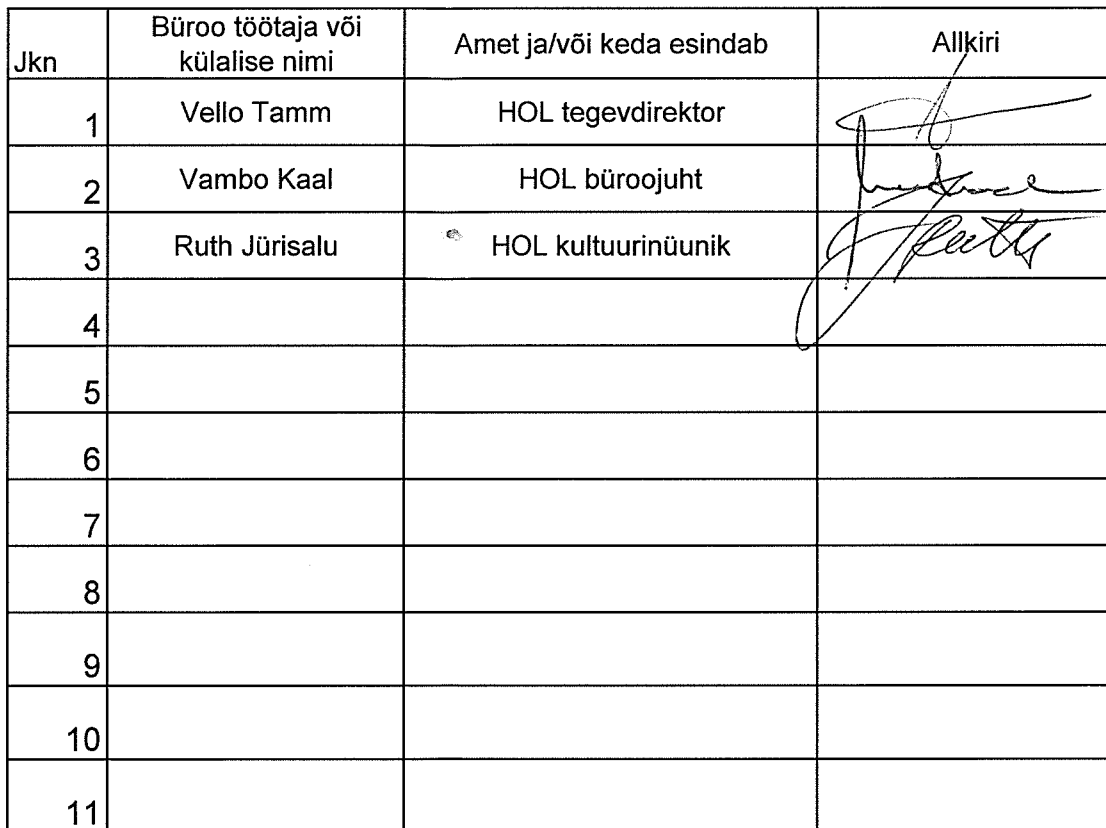 Jkn Büroo töötaja või külalise nimi Amet ja/või keda esindab Allkiri
1 Vello Tamm HOL tegevdirektor
2 Vambo Kaal HOL büroojuht
3 Ruth Jürisalu HOL kultuurinüunik
4
5
6
7
8
9
10
11